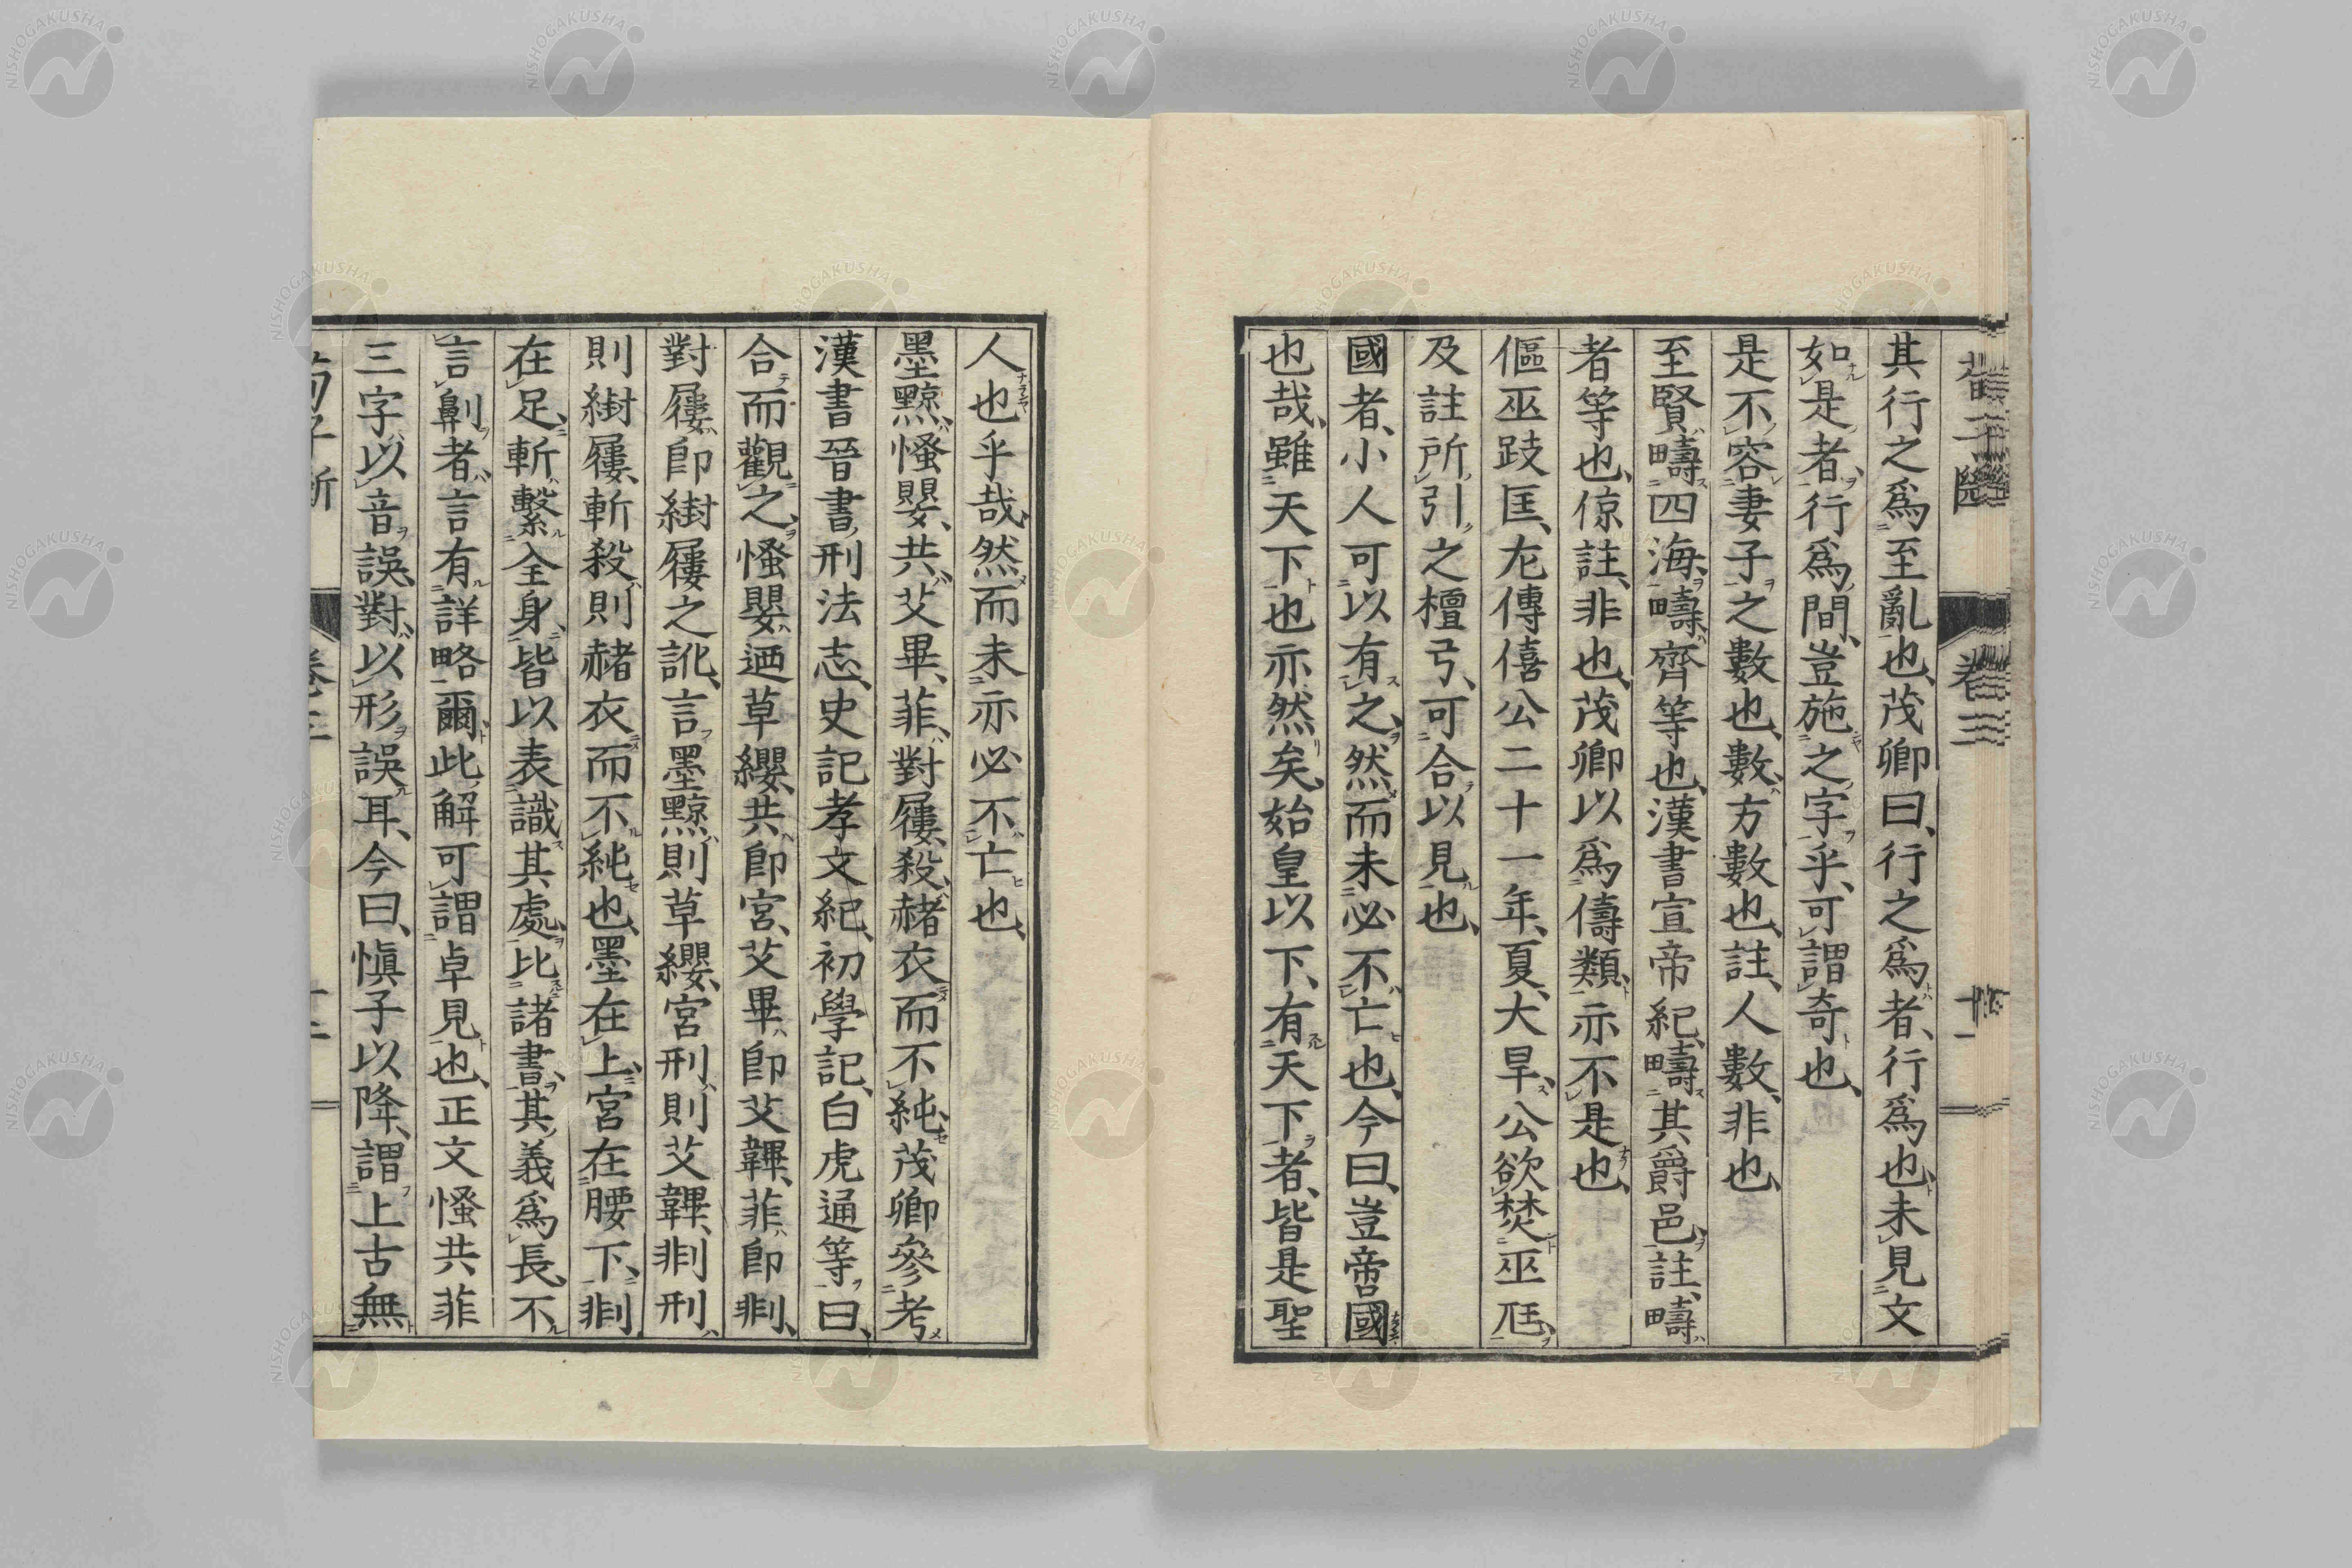 其行之爲至亂也、茂卿曰、行之爲者、行爲也、未見文
如是者、行爲間、豈施之字乎、可謂奇也、
是不容妻子之數也、數、方數也、註、人數、非也、
至賢疇四海、疇、齊等也、漢書宣帝紀、疇其爵邑、註、疇
者等也、倞註、非也、茂卿以爲儔類、亦不是也、
傴巫跂匡、左傳僖公二十一年、夏、大旱、公欲焚巫尫、
及註所引之檀弓、可合以見也、
國者、小人可以有之、然而未必不亡也、今曰、豈啻國
也哉、雖天下也亦然矣、始皇以下、有天下者、皆是聖
人也乎哉、然而未亦必不亡也、
墨黥、慅嬰、共、艾畢、菲、對屨、殺、赭衣而不純、茂卿參考
漢書晉書刑法志、史記孝文紀、初學記、白虎通等、曰、
合而觀之、慅嬰、迺草纓、共、卽宮、艾畢、卽艾韠、菲、卽剕、
對屨、卽䋽屨之訛、言墨黥則草纓、宮刑則艾韠、剕刑、
則䋽屨、斬殺、則赭衣而不純也、墨在上、宮在腰下、剕
在足、斬繫全身、皆以表識其處、比諸書、其義爲長、不
言劓者、言有詳略爾、此解可謂卓見也、正文慅共菲
三字、以音誤、對、以形誤耳、今曰、愼子以降、謂上古無
卷三
十一
NISHOGAKUSHA